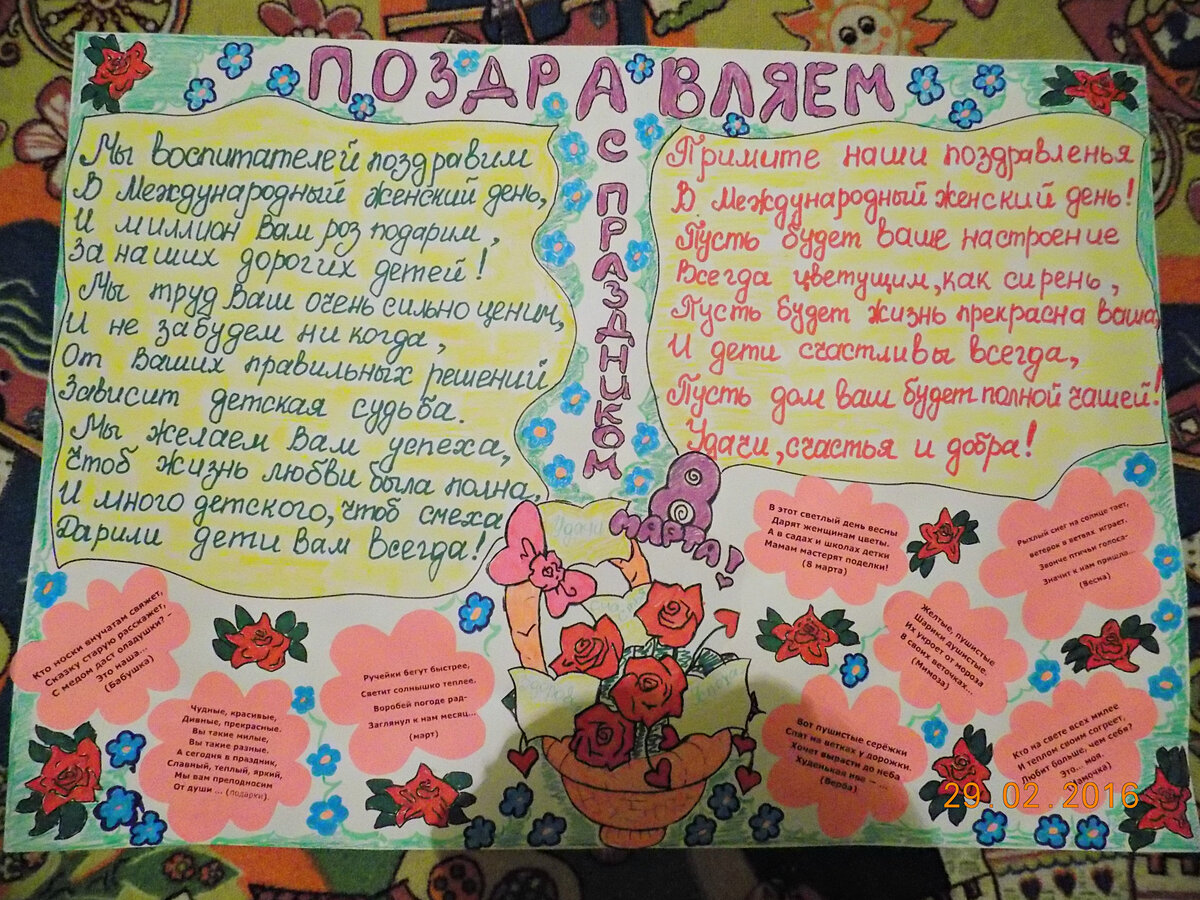 ПОЗДРАВЛЯЕМ
С ПРАЗДНИКОМ
8
МАРТА!
Мы воспитателей поздравим
В Международный женский день,
И миллион Вам роз подарим,
За наших дорогих детей!
Мы труд Ваш очень сильно ценим,
И не забудем ни когда,
От Ваших правильных решений
Зависит детская судьба.
Мы желаем Вам успеха,
Чтоб жизнь любви была полна,
И много детского, чтоб смеха
Дарили дети Вам Всегда!
Примите наши поздравленья
В Международный женский день!
Пусть будет ваше настроение
Всегда цветущим, как сирень,
Пусть будет жизнь прекрасна ваша,
И дети счастливы всегда,
Пусть дом ваш будет полной чашей!
Удачи, счастья и добра!
В этот светлый день весны
Дарят женщинам цветы.
А в садах и школах детки
Мамам мастерят поделки!
(8 марта)
Рыхлый снег на солнце тает,
ветерок в ветвях играет.
Звонче птичьи голоса-
Значит к нам пришла...
(Весна)
Кто носки внучатам свяжет,
Сказку старую расскажет,
С медом даст оладушки? -
Это наша...
(Бабушка)
Ручейки бегут быстрее,
Светит солнышко теплее.
Воробей погоде рад-
Заглянул к нам месяц...
(март)
Желтые, пушистые
Шарики душистые.
Их укроет от мороза
В своих веточках...
(Мимоза)
Чудные, красивые,
Дивные, прекрасные.
Вы такие милые,
Вы такие разные.
А сегодня в праздник,
Славный, теплый, яркий,
Мы вам преподносим
От души ... (подарки).
Вот пушистые серёжки
Спят на ветках у дорожки.
Хочет вырасти до неба
Худенькая ива — ...
(Верба)
Кто на свете всех милее
И теплом своим согреет,
Любит больше, чем себя?
Это... моя.
(Мамочка)
Удачи
29.02.2016